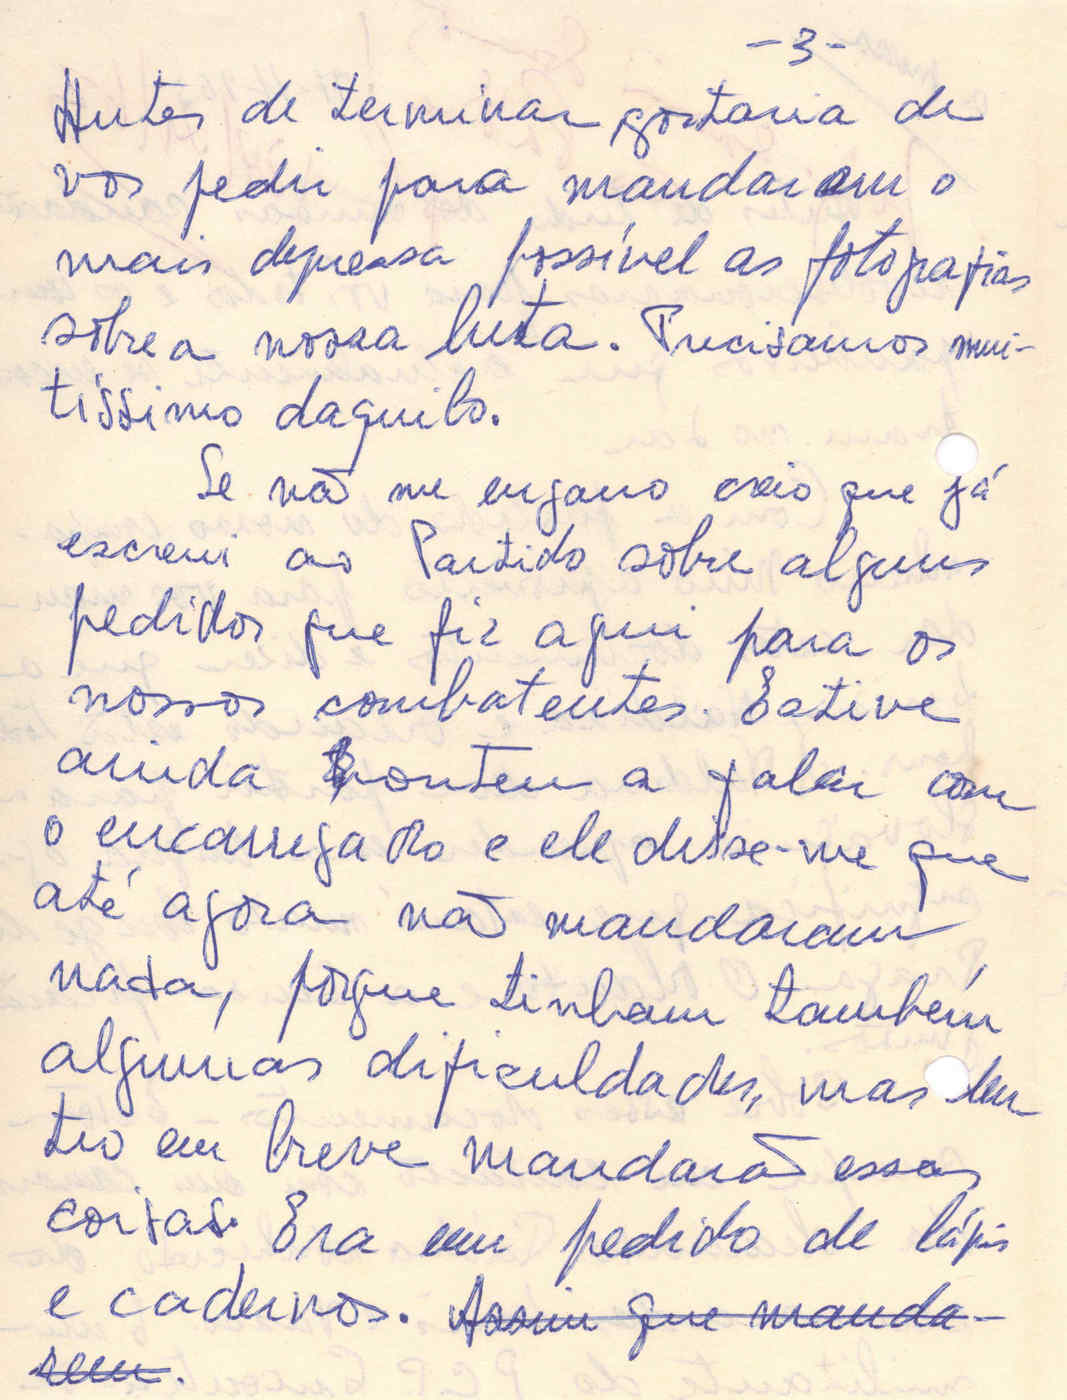 -3-
Antes de terminar gostaria de
vos pedir para mandarem o
mais depressa possível as fotografias
sôbre a nossa luta. Precisamos mui-
tíssimo daquilo.
Se não me engano creio que já
escrevi ao Partido sôbre alguns
pedidos que fiz aqui para os
nossos combatentes. Estive
ainda ontem a falar com
o encarregado e ele disse-me que
até agora não mandaram
nada, porque tinham também
algumas dificuldades, mas den
tro em breve mandarão essas
coisas. Era um pedido de lápis
e cadernos. Assim que manda-
rem.